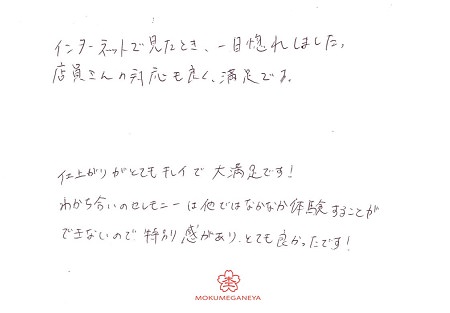 インターネットで見たとき、一目惚れしました。
店員さんの対応も良く、満足です。
仕上がりがとてもキレイで大満足です！
わかち合いのセレモニーは他ではなかなか体験することが
できないので、特別感があり、とても良かったです！
MOKUMEGANEYA